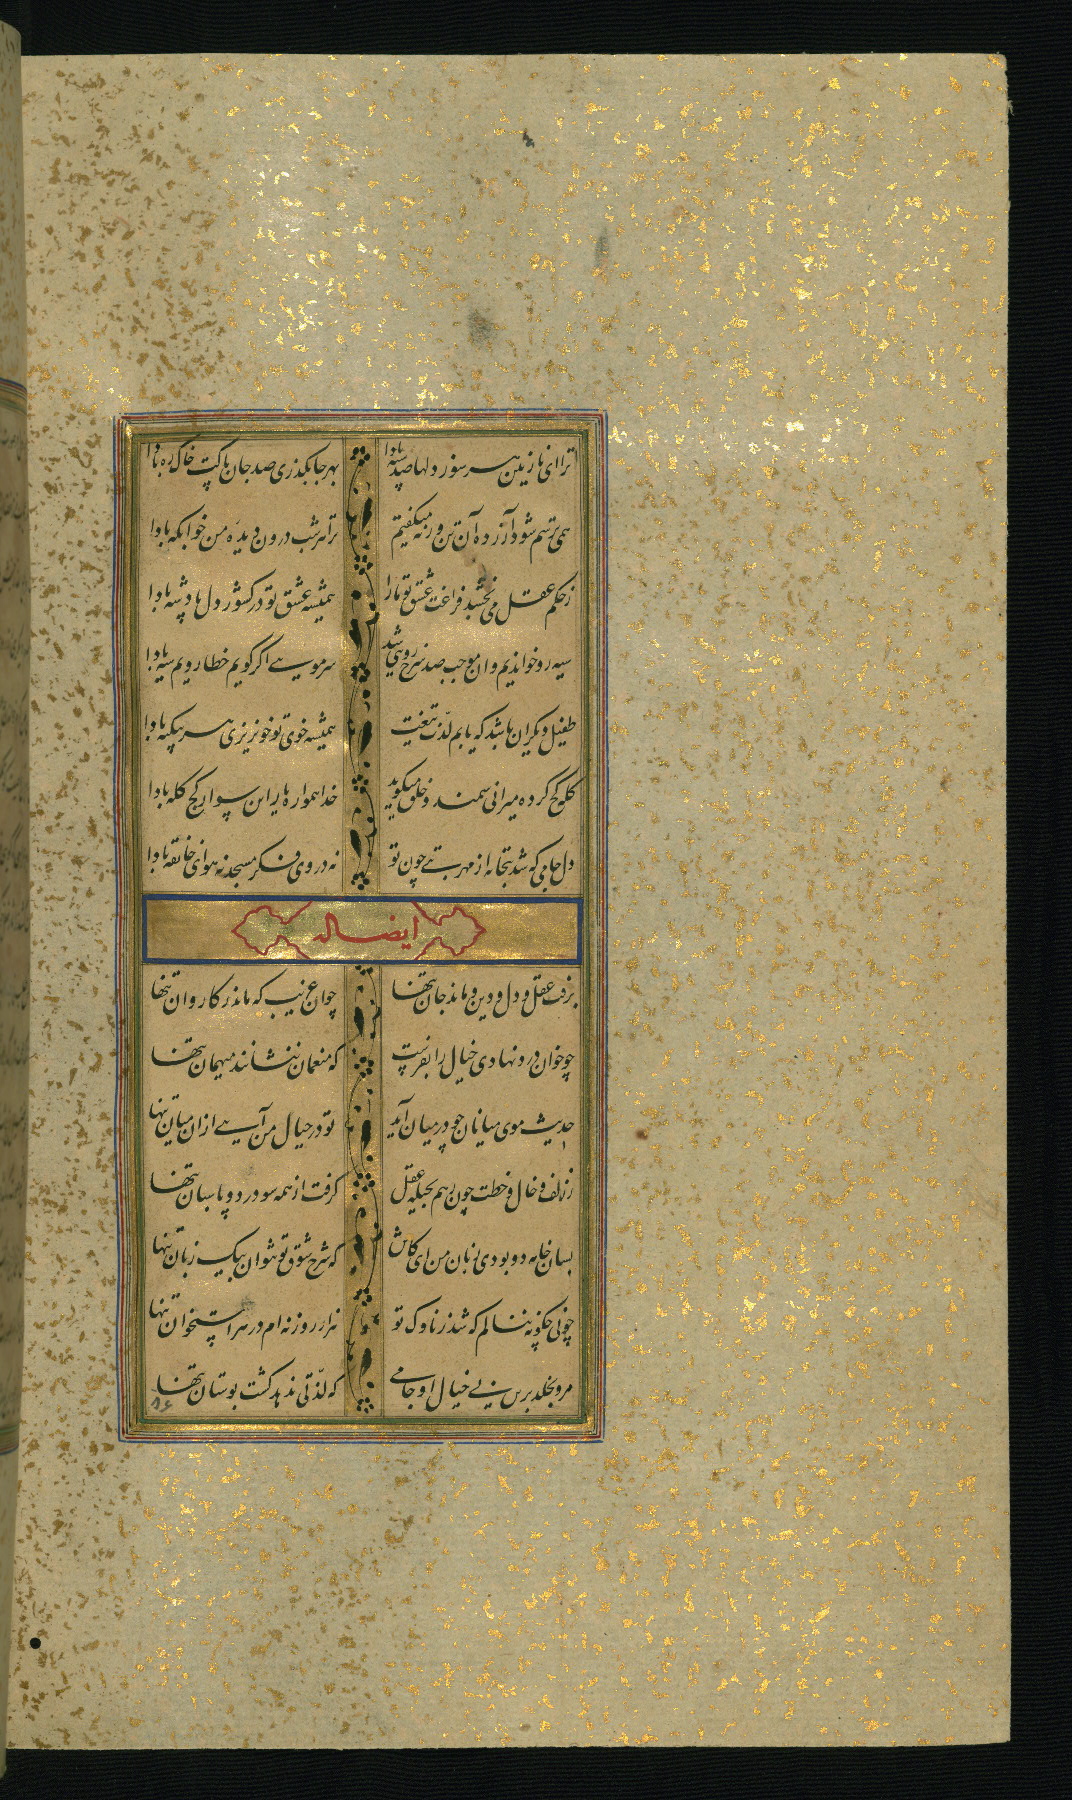 ترا ای نازنین هر سو ز دلها صد سپه بادا بهر جا بگذری صد جان پاکت خاک ره بادا
همی ترسم شود آزرده آن تن ورنه میگفتم ترا هر شب درون دیده من خوابگه بادا
ز حکم عقل می بخشد فراغت عشق تو ما را همیشه عشق تو در کشور دل پادشه بادا
سیه رو خواندیم وان موجب صد سرخ رویی شد سر مویی اگر گویم خطا رویم سیه بادا
طفیل دیگران باشد که یابم لذت تیغت همیشه خوی تو خونریزی هر بیگنه بادا
کله کج کرده میرانی سمند و خلق میگوید خدا همواره یار این سوار کج کله بادا
دل جامی که شد بتخانه از مهر بتی چون تو نه در وی فکر مسجد نه هوای خانقه بادا
ایضا له
برفت عقل و دل و دین و ماند جان تنها چو آن غریب که ماند ز کاروان تنها
چو خوان درد نهادی خیال را بفرست که منعمان ننشانند میهمان تنها
حدیث موی میانان چو در میان آید تو در خیال من آیی از آن میان تنها
ز زلف و خال و خطت چون رهم بحیله عقل گرفت از همه سو درد و پاسبان تنها
بسان خامه دو بودی زبان من ای کاش که شرح شوق تو نتوان بیک زبان تنها
چو نی چگونه ننالم که شد ز ناوک تو هزار روزنه ام در هر استخوان تنها
مرو بخلد برین بی خیال او جامی که لذتی ندهد گشت بوستان تنها
۸۶